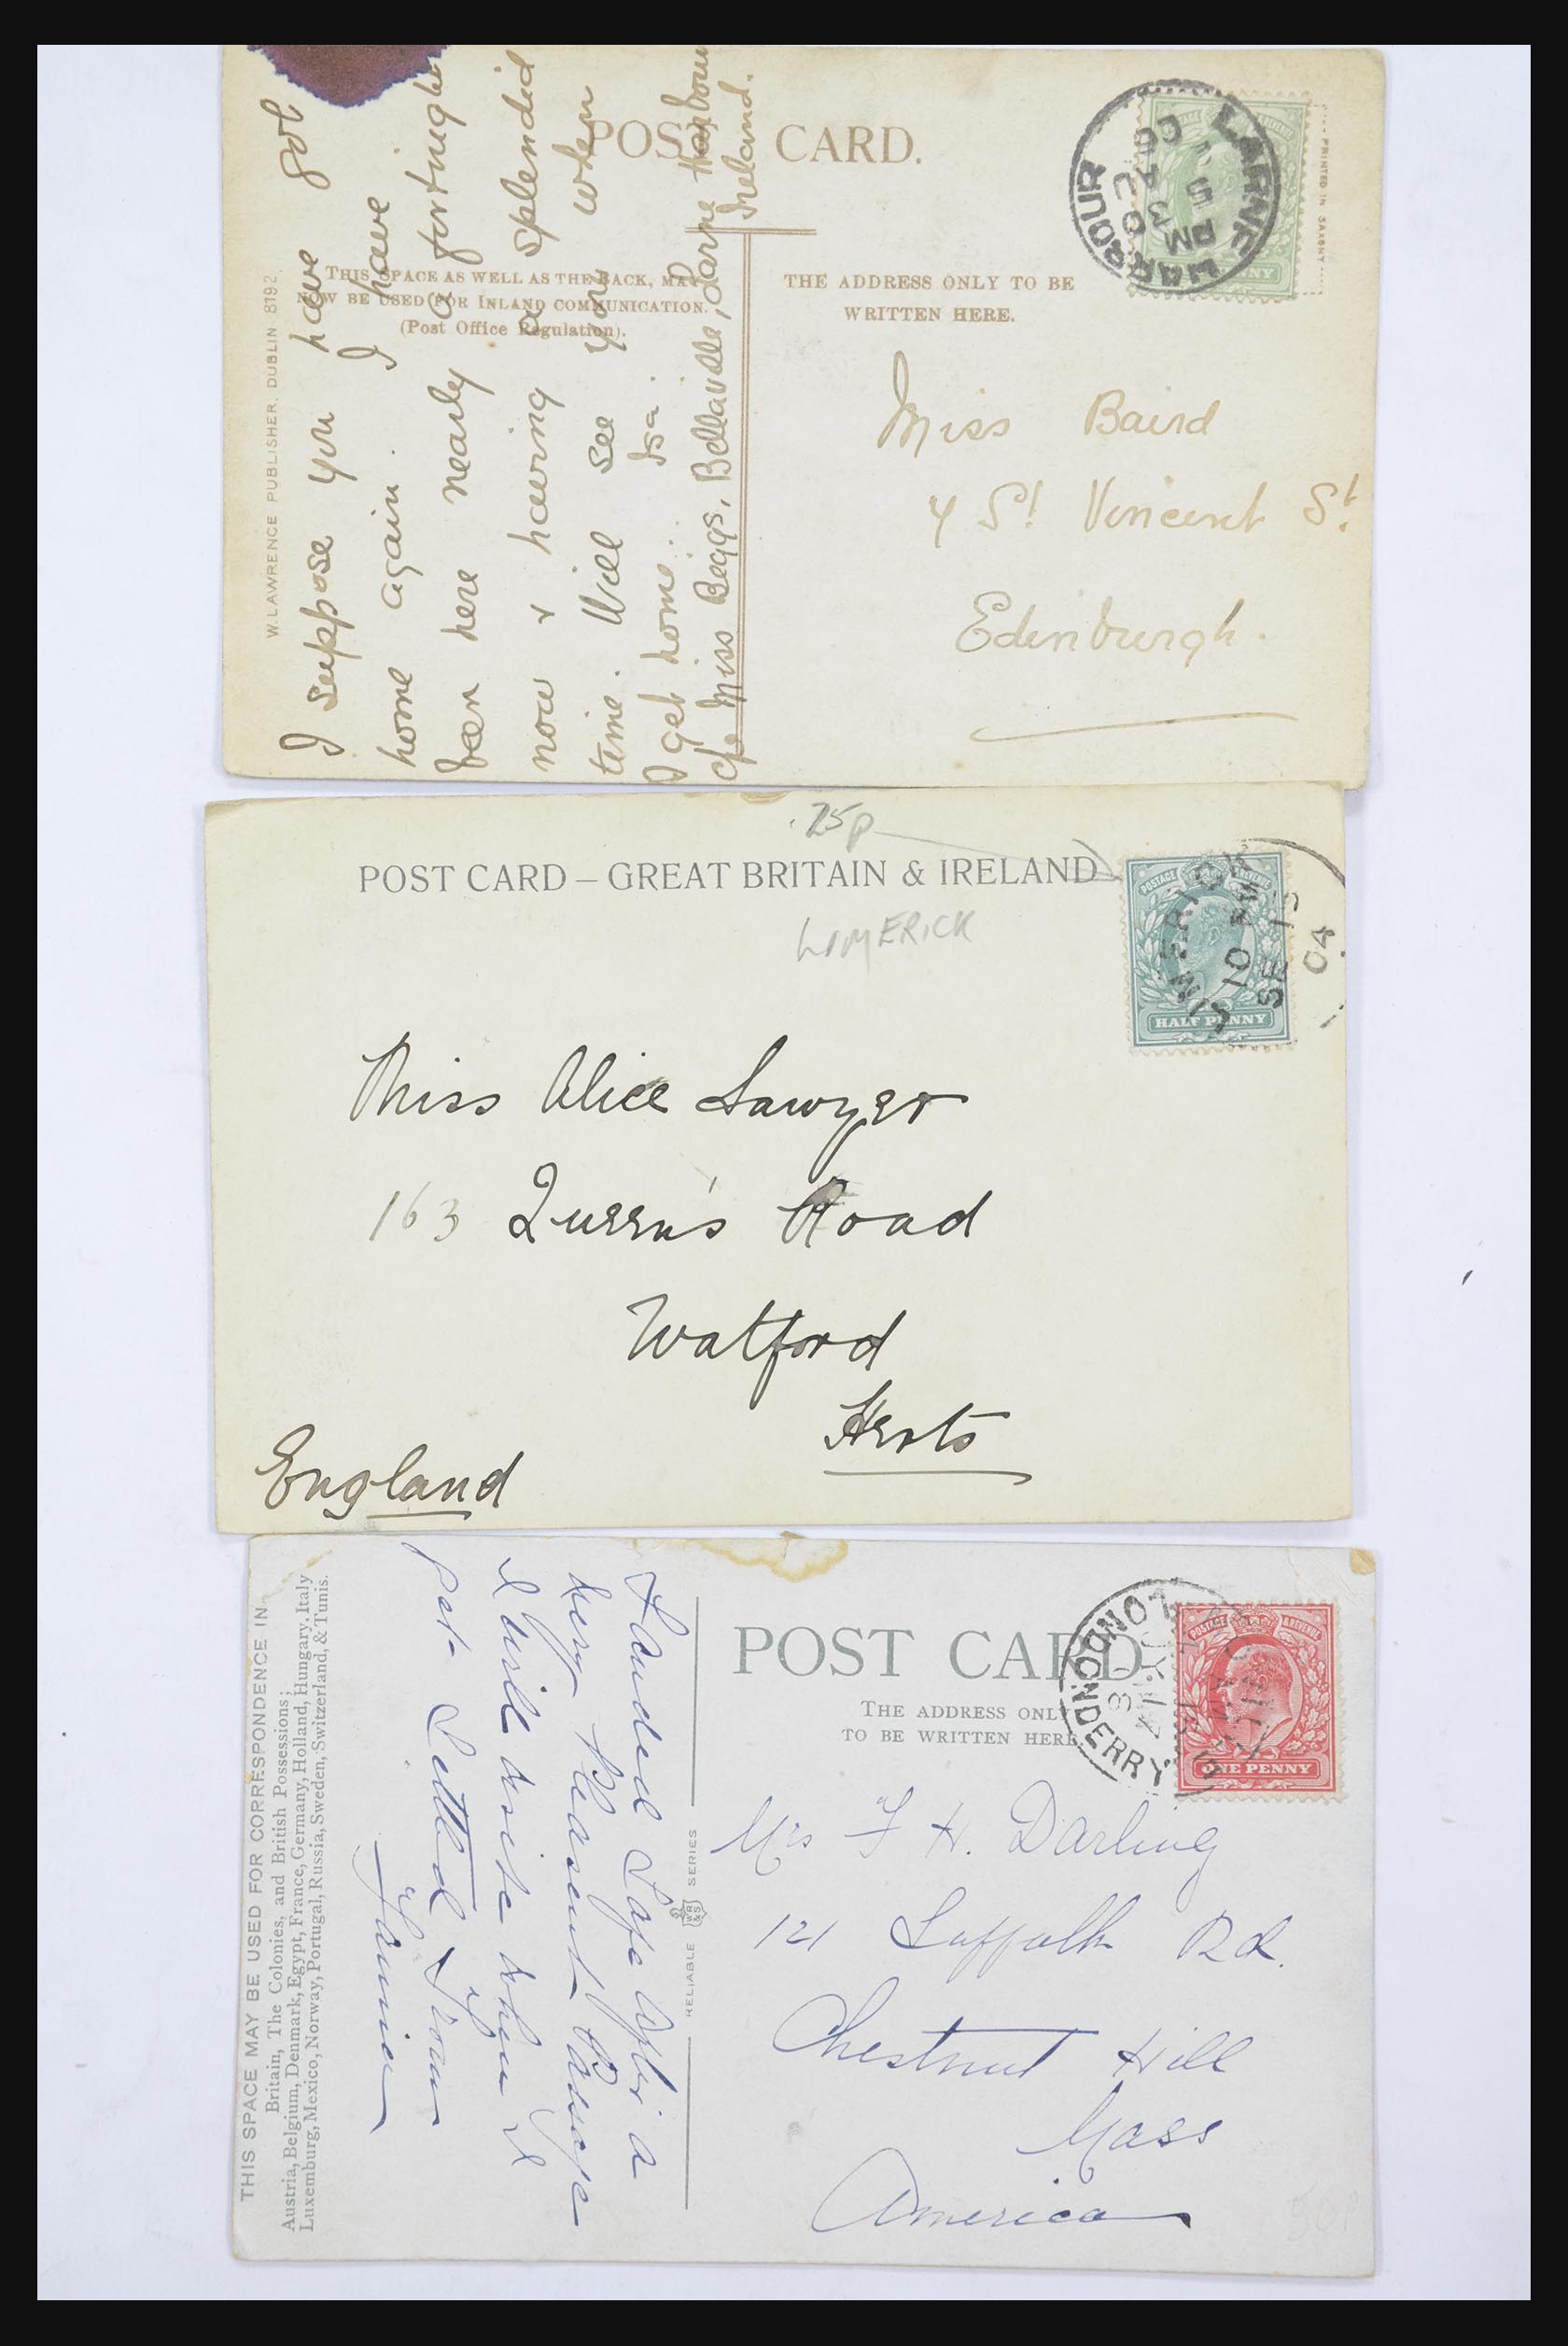 POST CARD.
PRINTED IN SAXONY
LARNE HARBOUR
5 PM
W. LAWRENCE PUBLISHER, DUBLIN 8192.
THIS SPACE AS WELL AS THE BACK, MAY
NOW BE USED FOR INLAND COMMUNICATION.
(Post Office Regulation).
THE ADDRESS ONLY TO BE
WRITTEN HERE.
I suppose you have got
home again. I have
been here nearly a fortnight
now & having a splendid
time. Will see you when
I get home. Isa.
c/o Miss Beggs, Bellavilla, Larne Harbour
Ireland.
Miss Baird
4 St Vincent St.
Edinburgh.
.25p
POST CARD – GREAT BRITAIN & IRELAND
LIMERICK
POSTAGE REVENUE
HALF PENNY
LIMERICK
10 PM
SE 15
04
Miss Alice Sawyer
163 Queen's Road
Watford
Herts
England
THIS SPACE MAY BE USED FOR CORRESPONDENCE IN
Britain, The Colonies, and British Possessions;
Austria, Belgium, Denmark, Egypt, France, Germany, Holland, Hungary, Italy
Luxemburg, Mexico, Norway, Portugal, Russia, Sweden, Switzerland, & Tunis.
POST CARD
THE ADDRESS ONLY
TO BE WRITTEN HERE
RELIABLE WR&S SERIES
LONDONDERRY
POSTAGE REVENUE
ONE PENNY
Landed Safe After a
Very Pleasent Passage
I will write when I
get Settled Down
Fannie
Mrs F H. Darling
121 Suffolk Rd.
Chestnut Hill
Mass
America
50p